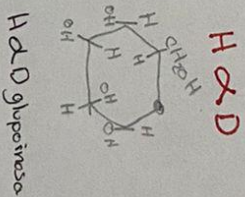 H α D
CH2OH
H
OH
H
OH
H
OH
H
OH
H
H α D glupoinosa